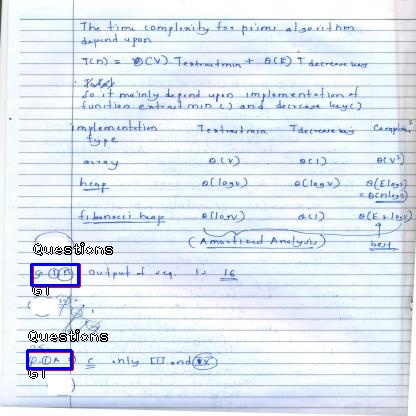 The time complexity for prims algorithm
depend upon
T(n) = θ(V) Textractmin + θ(E) Tdecrease key
So it mainly depend upon implementation of
function extract min() and decrease key()
implementation Textractmin Tdecrease key Complexity
type
array θ(V) θ(1) θ(V²)
heap θ(logV) θ(logV) θ(E logV)
= θ(nlogn)
fibonacci heap θ(logV) θ(1) θ(E + logV)
(Amortized Analysis) best
Questions
Output of seq. is 16
Questions
C only III and IV